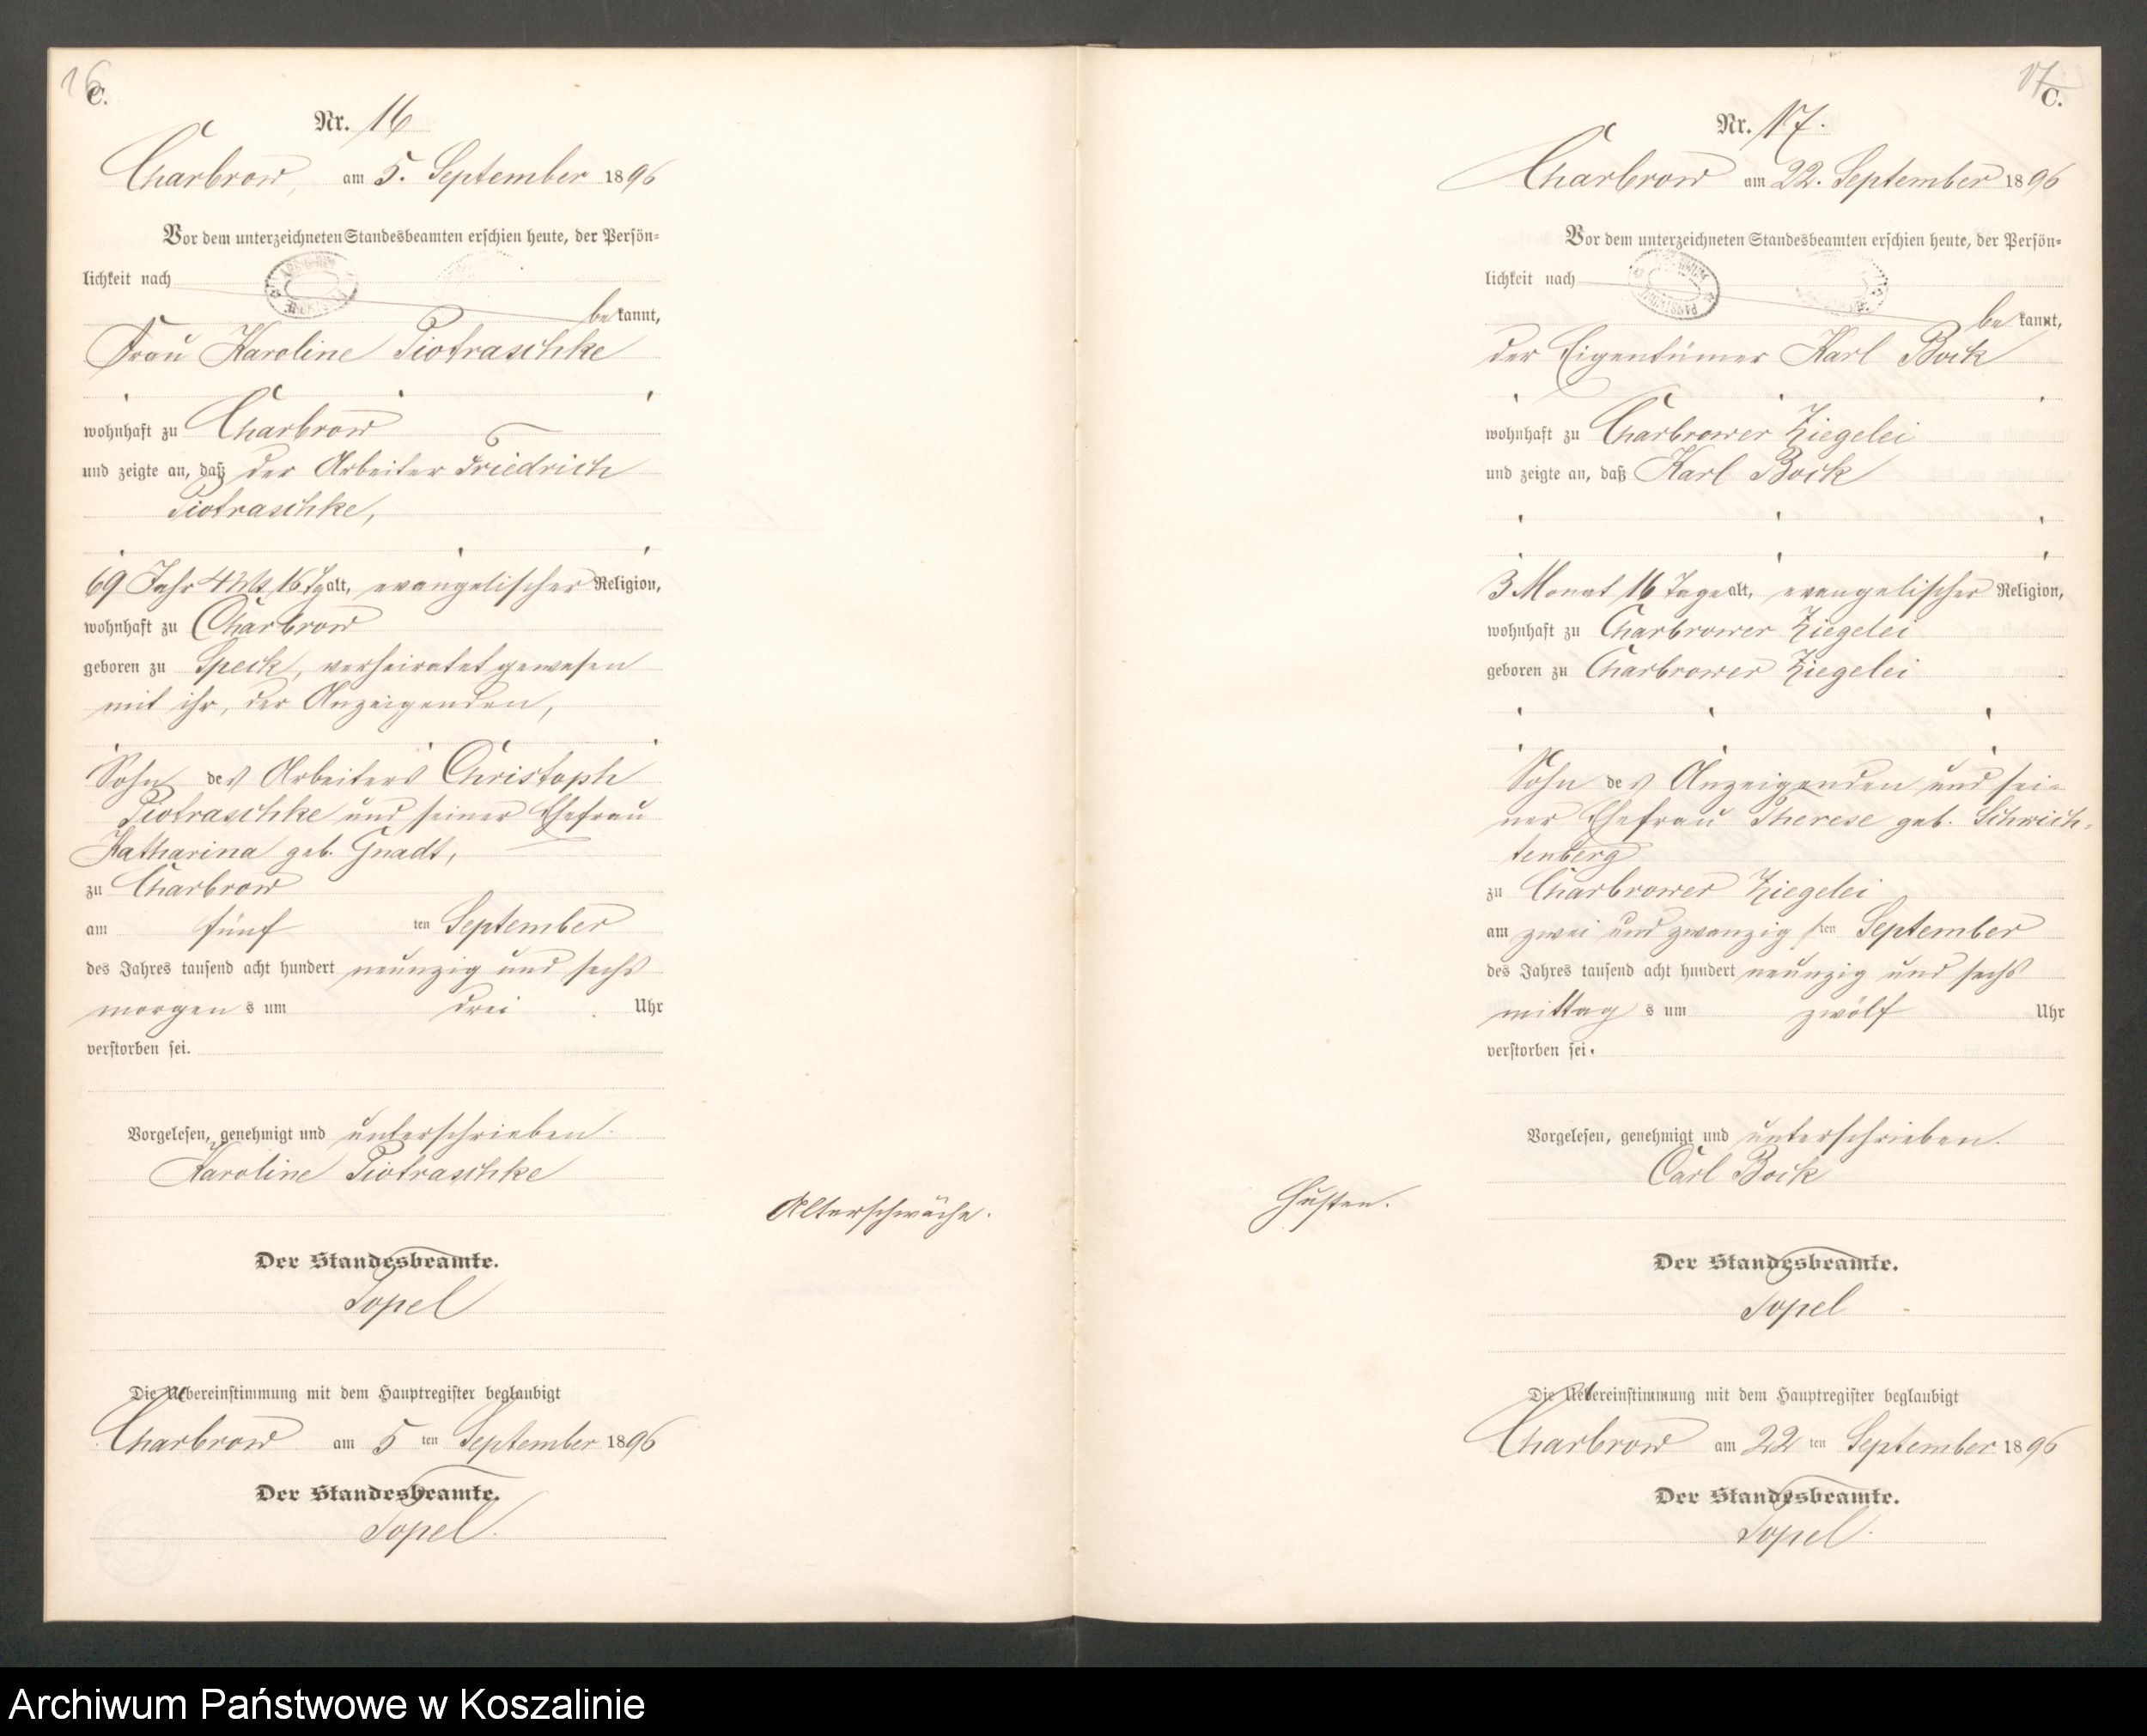 16
C.
Nr. 16
Charbrow, am 5. September 1896
Vor dem unterzeichneten Standesbeamten erschien heute, der Persön-
lichkeit nach
bekannt,
Frau Karoline Piotraschke
wohnhaft zu Charbrow
und zeigte an, daß der Arbeiter Friedrich
Piotraschke,
69 Jahr 4 Mt. 16 Tg alt, evangelischer Religion,
wohnhaft zu Charbrow
geboren zu Speck, verheiratet gewesen
mit ihr, der Anzeigenden,
Sohn des Arbeiters Christoph
Piotraschke und seiner Ehefrau
Katharina geb. Gnadt,
zu Charbrow
am fünf ten September
des Jahres tausend acht hundert neunzig und sechs
morgens um drei Uhr
verstorben sei.
Vorgelesen, genehmigt und unterschrieben.
Karoline Piotraschke
Alterschwäche.
Der Standesbeamte.
Topel
Die Uebereinstimmung mit dem Hauptregister beglaubigt
Charbrow am 5 ten September 1896
Der Standesbeamte.
Topel.
17
C.
Nr. 17.
Charbrow am 22. September 1896
Vor dem unterzeichneten Standesbeamten erschien heute, der Persön-
lichkeit nach
bekannt,
der Eigentümer Karl Bock
wohnhaft zu Charbrower Ziegelei
und zeigte an, daß Karl Bock
3 Monat 16 Tage alt, evangelischer Religion,
wohnhaft zu Charbrower Ziegelei
geboren zu Charbrower Ziegelei
Sohn des Anzeigenden und sei-
ner Ehefrau Therese geb. Schwich-
tenberg
zu Charbrower Ziegelei
am zwei und zwanzigsten September
des Jahres tausend acht hundert neunzig und sechs
mittags um zwölf Uhr
verstorben sei.
Vorgelesen, genehmigt und unterschrieben.
Carl Bock
Husten.
Der Standesbeamte.
Topel
Die Uebereinstimmung mit dem Hauptregister beglaubigt
Charbrow am 22 ten September 1896
Der Standesbeamte.
Topel.
Archiwum Państwowe w Koszalinie